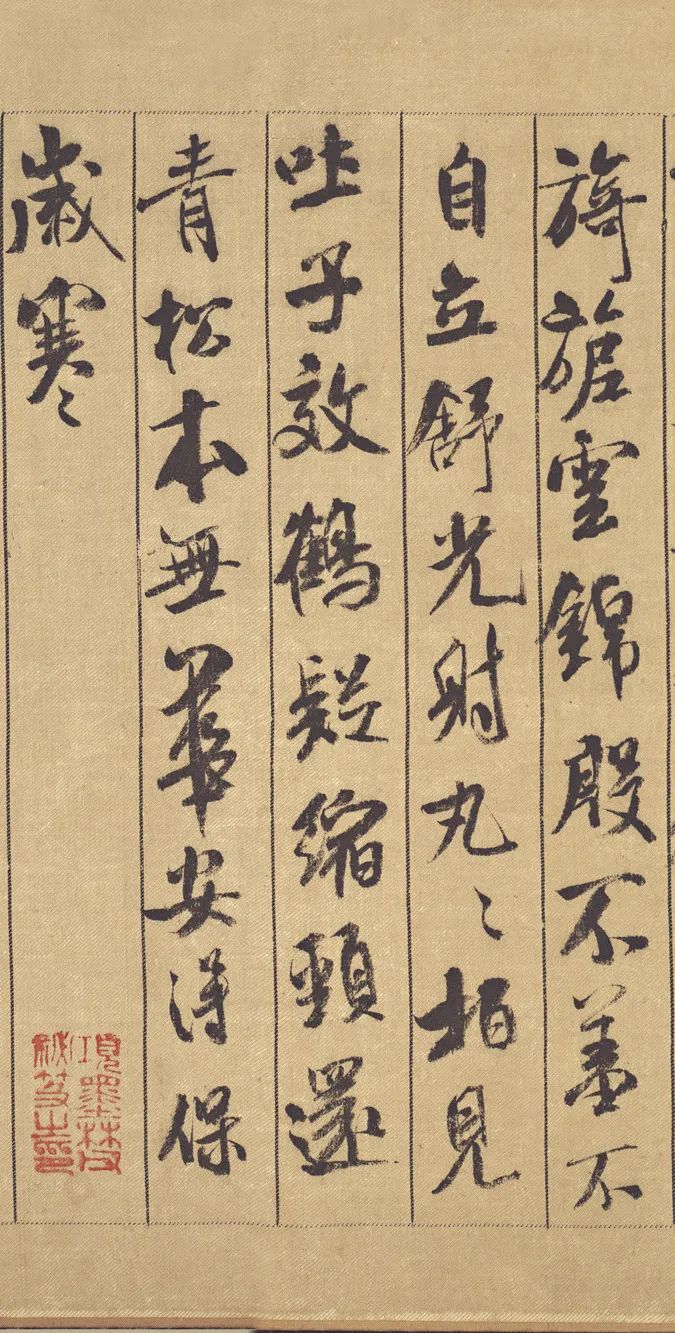 旖旎雲錦殷不羞不
自立舒光射丸〻柏見
吐子效鶴疑縮頸還
青松本無華安得保
歲寒
項墨林父
秘笈之印